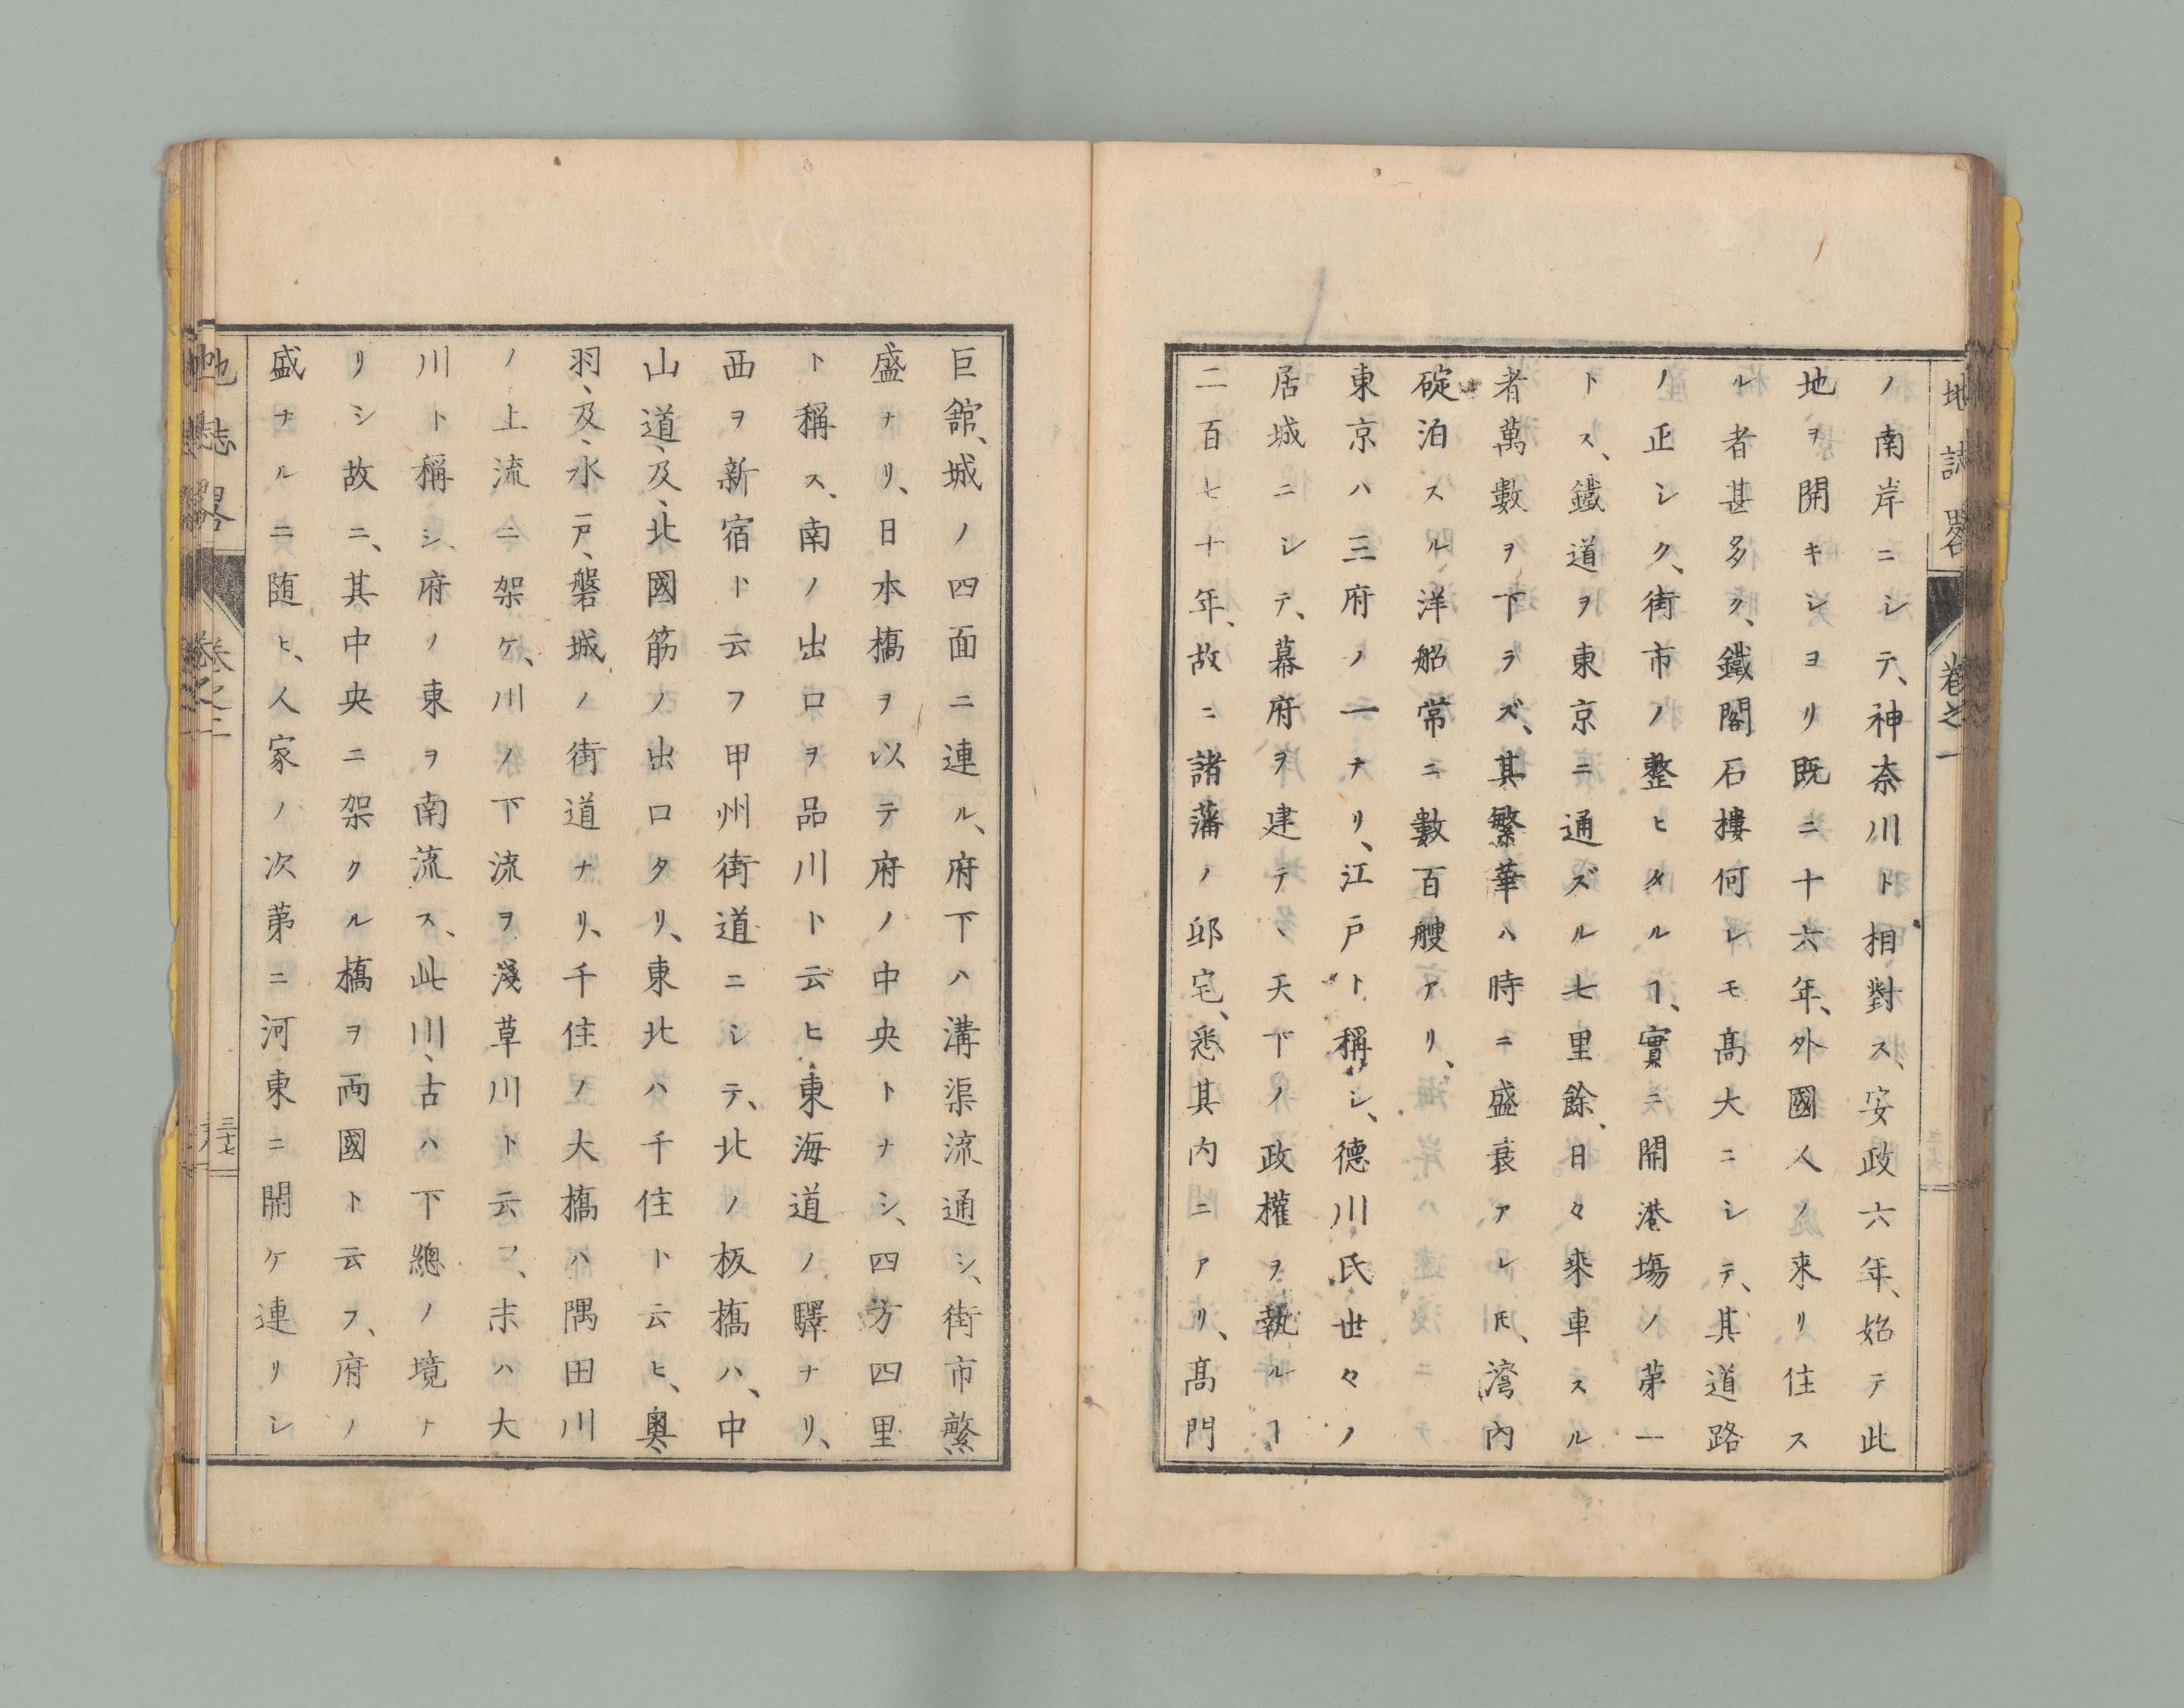 地誌畧 卷之一
ノ南岸ニシテ、神奈川ト相對ス、安政六年、始テ此
地ヲ開キシヨリ既ニ十六年、外國人ノ来リ住ス
ル者甚多ク、鐵閣石樓何レモ髙大ニシテ、其道路
ノ正シク、街市ノ整ヒタルヿ、實ニ開港塲ノ第一
トス、鐵道ヲ東京ニ通ズル七里餘、日々乗車スル
者萬數ヲ下ラズ、其繁華ハ時ニ盛衰アレ𪜈、灣內
碇泊スル洋船常ニ數百艘アリ、
東京ハ三府ノ一ナリ、江戸ト稱シ、德川氏世々ノ
居城ニシテ、幕府ヲ建テ、天下ノ政權ヲ執ルヿ
二百七十年、故ニ諸藩ノ邸宅、悉其内ニアリ、髙門
巨舘、城ノ四面ニ連ル、府下ハ溝渠流通シ、街市繁
盛ナリ、日本橋ヲ以テ府ノ中央トナシ、四方四里
ト稱ス、南ノ出口ヲ品川ト云ヒ、東海道ノ驛ナリ、
西ヲ新宿ト云フ甲州街道ニシテ、北ノ板橋ハ、中
山道、及、北國筋ノ出口タリ、東北ハ千住ト云ヒ、奥
羽、及、水戸、磐城ノ街道ナリ、千住ノ大橋ハ隅田川
ノ上流ニ架ケ、川ノ下流ヲ淺草川ト云フ、末ハ大
川ト稱シ、府ノ東ヲ南流ス、此川、古ハ下總ノ境ナ
リシ故ニ、其中央ニ架クル橋ヲ両國ト云フ、府ノ
盛ナルニ随ヒ、人家ノ次第ニ河東ニ開ケ連リシ
地誌畧 卷之一 三十七